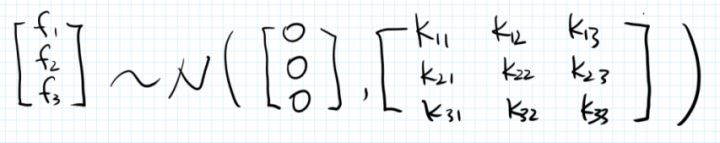 [f₁ f₂ f₃] ~ N([0 0 0], [k₁₁ k₁₂ k₁₃
k₂₁ k₂₂ k₂₃
k₃₁ k₃₂ k₃₃])